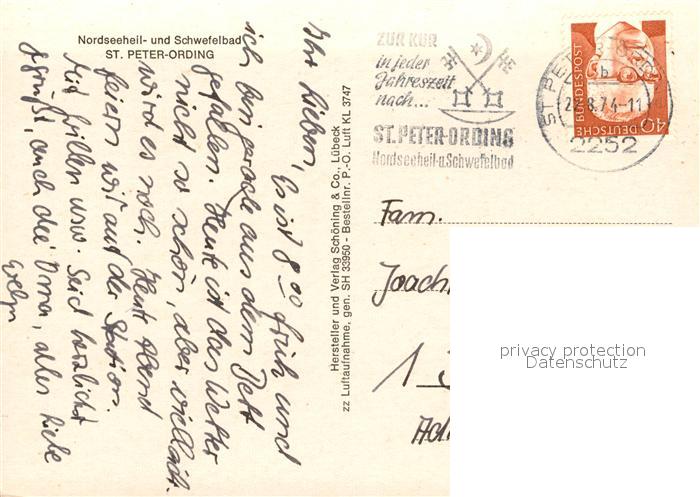 Nordseeheil- und Schwefelbad
ST. PETER-ORDING
Ihr Lieben,
Es ist 8 00 früh und
ich bin gerade aus dem Bett
gefallen. Heute ist das Wetter
nicht so schön, aber vielleicht
wird es noch. Heute Abend
feiern wir auf der Station.
Mit Grillen usw. Seid herzlichst
gegrüßt, auch die Oma, alles Liebe
Hersteller und Verlag Schöning & Co., Lübeck
zz Luftaufnahme, gen. SH 33950 - Bestellnr. P.-O. Luft KL 3747
ZUR KUR
in jeder
Jahreszeit
nach...
ST. PETER-ORDING
Nordseeheil-u.Schwefelbad
ST PETER
.8.74-11
2252
DEUTSCHE
BUNDESPOST
40
Fam.
Joach
1
privacy protection
Datenschutz